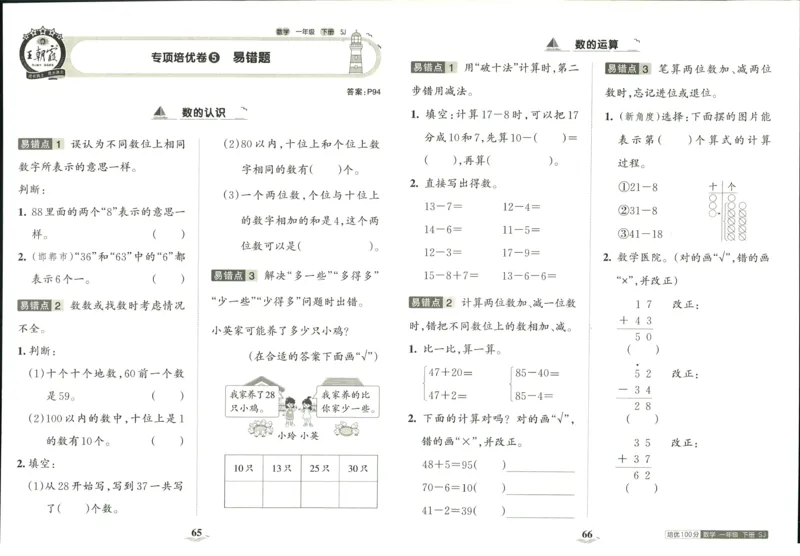 数学 一年级 下册 SJ
王朝霞
专项培优卷5 易错题
答案:P94
数的认识
易错点 1 误认为不同数位上相同
数字所表示的意思一样。
判断:
1. 88里面的两个“8”表示的意思一
样。 ( )
2. (邯郸市)“36”和“63”中的“6”都
表示6个一。 ( )
易错点 2 数数或找数时考虑情况
不全。
1. 判断:
(1)十个十个地数,60前一个数
是59。 ( )
(2)100以内的数中,十位上是1
的数有10个。 ( )
2. 填空:
(1)从28开始写,写到37一共写
了( )个数。
(2)80以内,十位上和个位上数
字相同的数有( )个。
(3)一个两位数,个位与十位上
的数字相加的和是4,这个两
位数可以是( )。
易错点 3 解决“多一些”“多得多”
“少一些”“少得多”问题时出错。
小英家可能养了多少只小鸡?
(在合适的答案下面画“√”)
我家养了28
只小鸡。
我家养的比
你家少一些。
小玲 小英
10只 13只 25只 30只
65
数的运算
易错点 1 用“破十法”计算时,第二
步错用减法。
1. 填空:计算17-8时,可以把17
分成10和7,先算10-( )=
( ),再算( )。
2. 直接写出得数。
13-7= 12-4=
14-6= 11-5=
12-3= 17-9=
15-8+7= 13-6-6=
易错点 2 计算两位数加、减一位数
时,错把不同数位上的数相加、减。
1. 比一比,算一算。
47+20= 85-40=
47+2= 85-4=
2. 下面的计算对吗?对的画“√”,
错的画“×”,并改正。
48+5=95( )
70-6=10( )
41-2=39( )
易错点 3 笔算两位数加、减两位
数时,忘记进位或退位。
1. (新角度)选择:下面摆的图片能
表示第( )个算式的计算
过程。
①21-8
②31-8
③41-18
十 个
2. 数学医院。(对的画“√”,错的画
“×”,并改正)
1 7 改正:
+ 4 3
5 0
( )
5 2 改正:
- 3 4
2 8
( )
3 5 改正:
+ 3 7
6 2
( )
66
培优100分 数学 一年级 下册 SJ